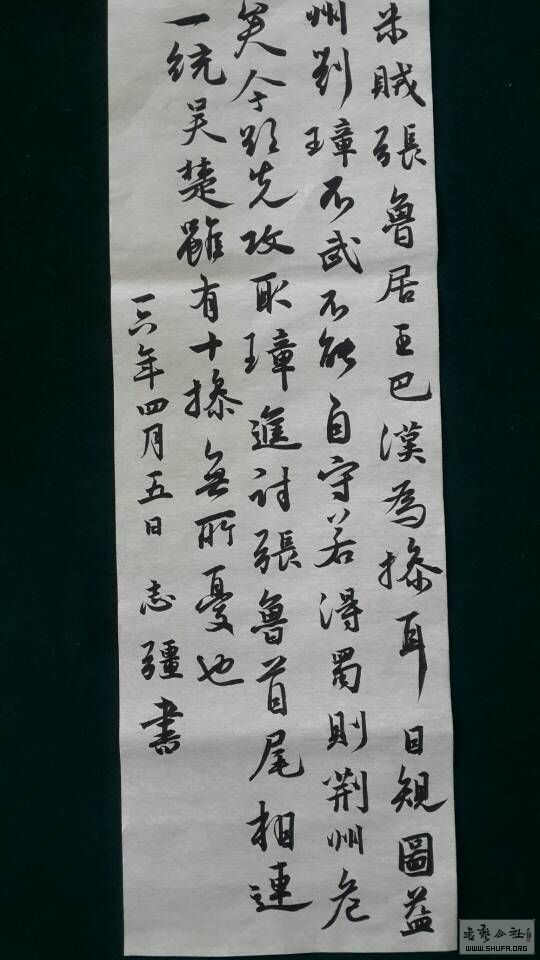 米賊張魯居王巴漢為操耳目規圖益
州劉璋不武不能自守若得蜀則荆州危
矣今欲先攻取璋進討張魯首尾相連
一統吴楚雖有十操無所憂也
一六年四月五日 志疆書
书艺公社
WWW.SHUFA.ORG